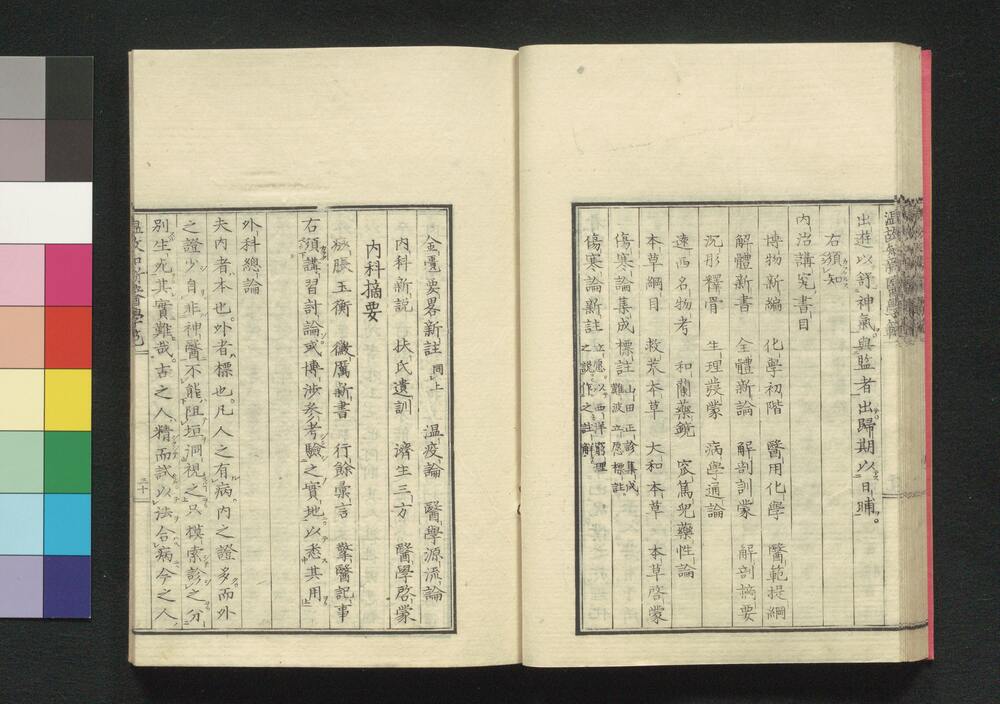 出遊以舒神氣。與監者出歸期以日晡。
右須知
内治講究書目
博物新編　化學初階　醫用化學　醫範提綱
解體新書　全體新論　解剖訓蒙　解剖摘要
沉彤釋骨　生理發蒙　病學通論
遠西名物考　和蘭藥鏡　窊篤兒藥性論
本草綱目　救荒本草　大和本草　本草啓蒙
傷寒論集成標註　山田正診集成　難波立愿標註
傷寒論新註　立愿以西洋窮理之説作之註解
金匱要畧新註　同上　温疫論　醫學源流論
内科新説　扶氏遺訓　濟生三方　醫學啓蒙
内科摘要
痧脹玉衡　黴厲新書　行餘彙言　擎醫記事
右須講習討論或博渉参考驗之實地以悉其用
外科總論
夫内者本也。外者標也。凡人之有病。内之證多而外
之證少。自非神醫不能阻垣洞視之。只模索診之分
別生尤其實難哉。古之人精而試以法合病今之人
温故知新醫學範
三十